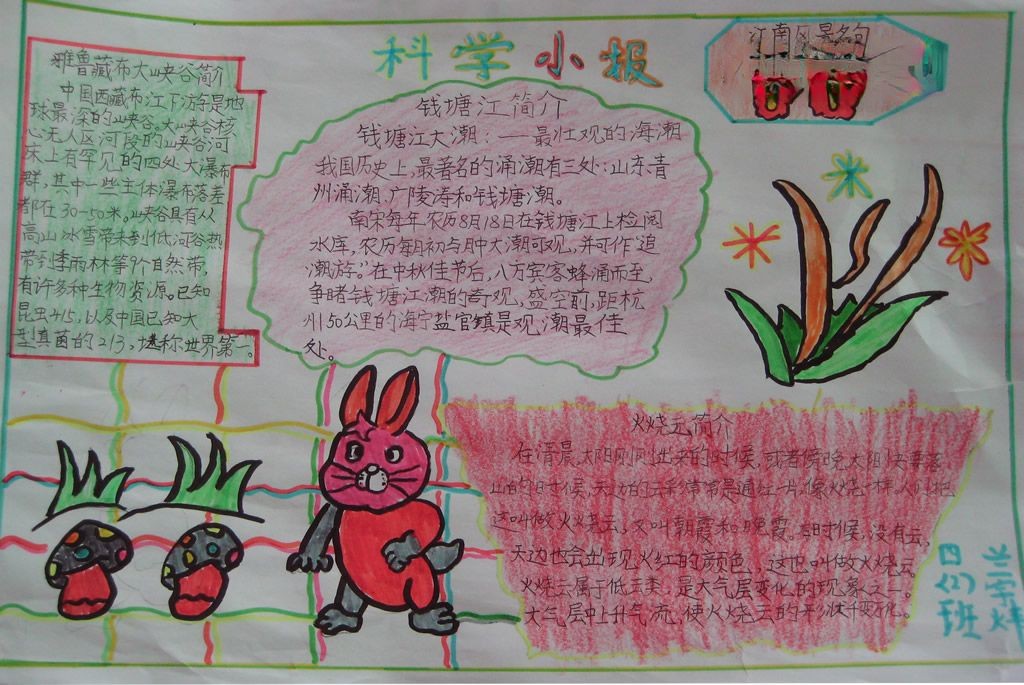 科学小报
雅鲁藏布大峡谷简介
中国西藏布江下游是地
球最深的山峡谷。大山峡谷核
心无人区河段的山峡谷河
床上有罕见的四处大瀑布
群,其中一些主体瀑布落差
都在30-50米。山峡谷具有从
高山冰雪带来到低河谷热
带到季雨林等9个自然带,
有许多种生物资源。已知
昆虫415,以及中国已知大
型真菌的2/3、堪称世界第一。
钱塘江简介
钱塘江大潮:——最壮观的海潮
我国历史上,最著名的涌潮有三处:山东青
州涌潮、广陵涛和钱塘潮。
南宋每年农历8月18日在钱塘江上检阅
水库,农历每月初与月中大潮可观,并可作“追
潮游。”在中秋佳节后,八方宾客蜂涌而至,
争睹钱塘江潮的奇观,盛空前,距杭
州50公里的海宁盐官镇是观潮最佳
处。
江南区景名句
火烧云简介
在清晨,太阳刚刚出来的时候,或者傍晚太阳快要落
山的时候,天边的云彩常常是通红一片,像火烧一样,人们把
这叫做火烧云,又叫朝霞和晚霞。有时候,没有云,
天边也会出现火红的颜色,这也叫做火烧云。
火烧云属于低云类,是大气层变化的现象之一。
大气层中上升气流,使火烧云的形状千变万化。
四(2)班